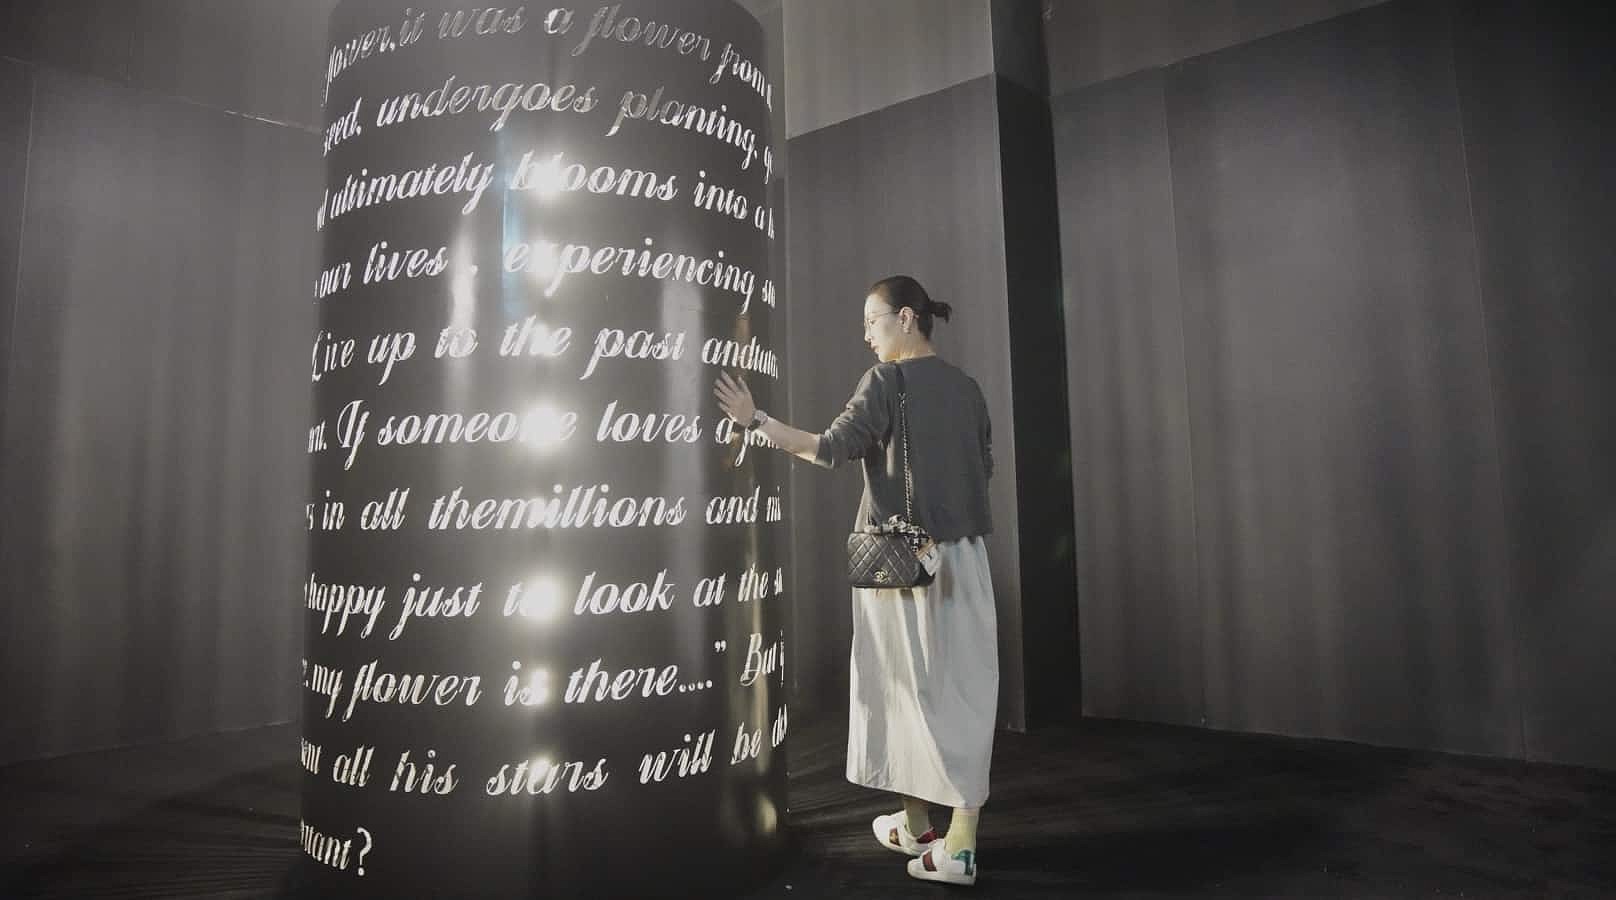 flower, it was a flower from
seed, undergoes planting,
ultimately blooms into a
our lives, experiencing
Live up to the past and
If someone loves a
in all themillions and
happy just to look at the
my flower is there....” But
all his stars will be
?